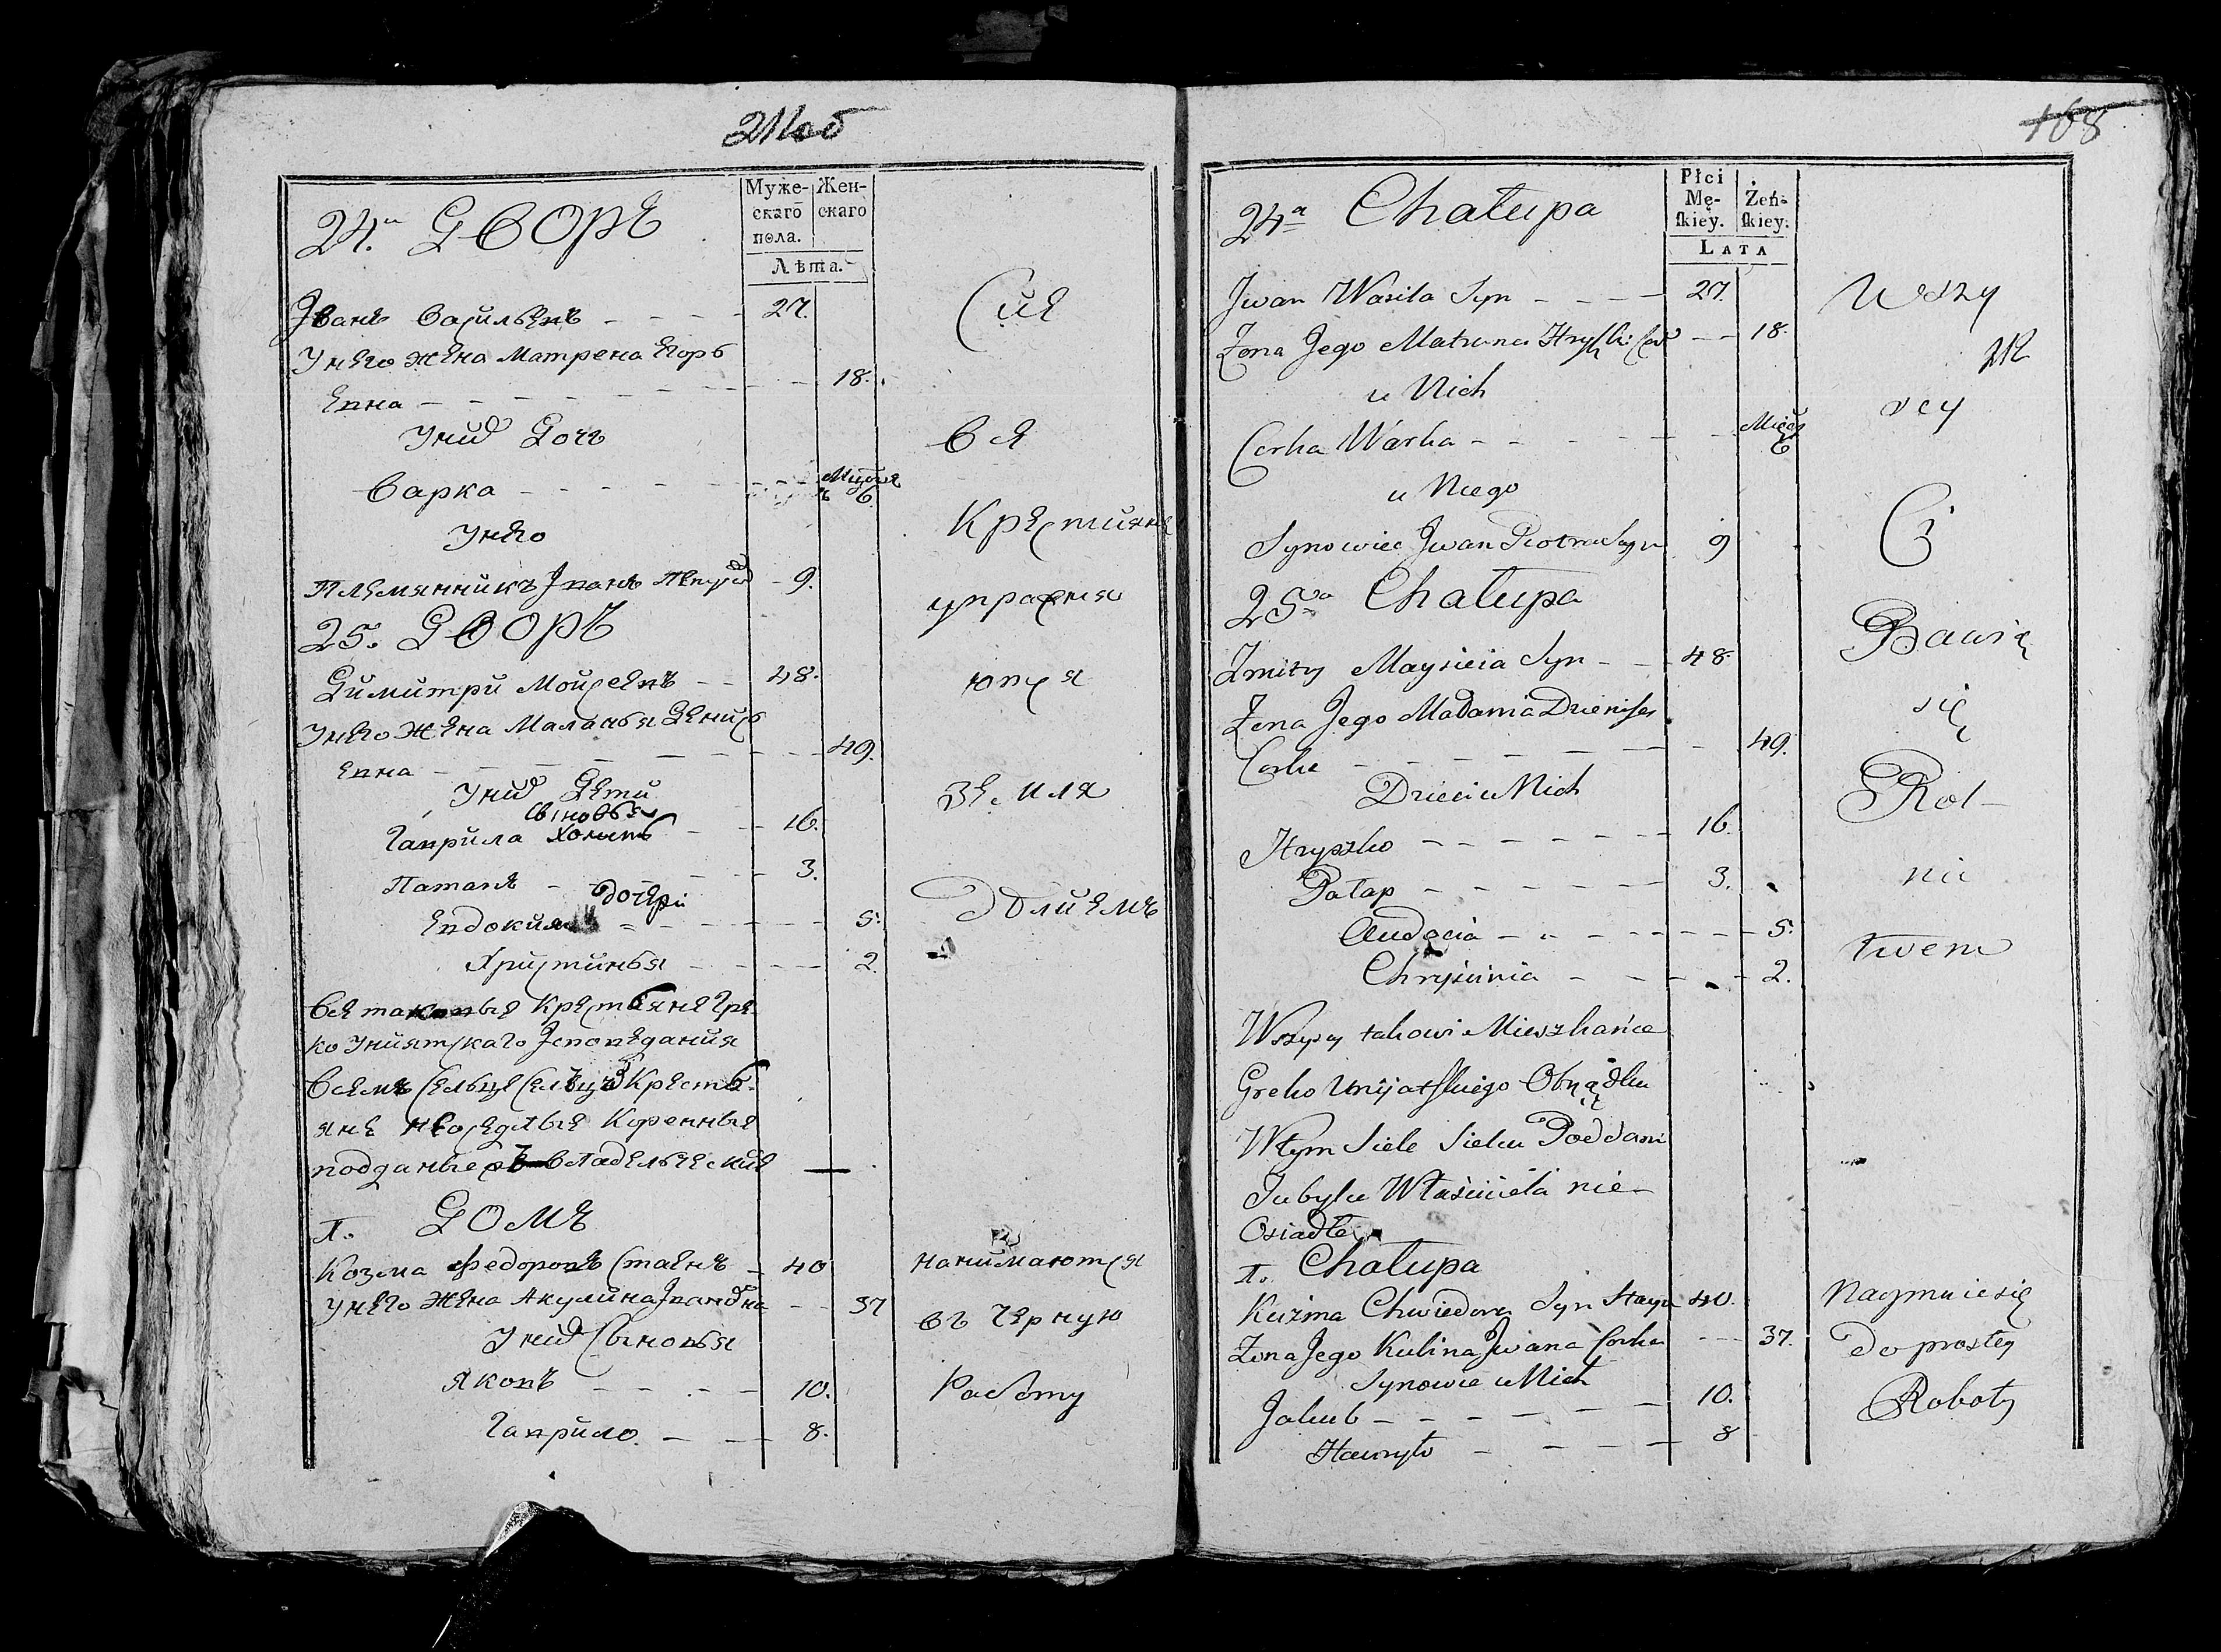 211 об
24.я Дворъ
Муже-
скаго
пола.
Жен-
скаго
Лѣта.
Іванъ Васильевъ - - - - 27.
Унего жена Матрена Егорь
евна - - - - - - 18.
Уних Дочь
Варка - - - - - Мцовъ 6.
Унего
племянникъ Іванъ Петровъ - 9.
25. Дворъ
Димитри Мойсеевъ - - 48.
Унего жена Маланья Денись
евна - - - - - - 49.
Уних Дети
сыновья
Гаврила - - 16.
Патапъ - - - - - 3.
дочери
Евдокия - - - - - 5.
Христинья - - - - 2.
Все таковые Крестьяне Гре
ко Униятскаго Исповедания
Всемъ Сельце Сельцѣ Кресть-
яне неоседлые Коренные
подданые владельческие
1. Домъ
Козма Федоровъ Стаенъ - 40
унего Жена Акулина Івановна - - 37
Уних Сыновья
Яковъ - - - - 10.
Гаврило. - - - 8.
Сие
все
Крестияне
упражня
ются
земля
делиемъ
нанимаются
въ черную
Работу
168
24а Chałupa
Płci
Mę-
skiey.
Żeń-
skiey.
LATA
Jwan Wasila Syn - - - - 27.
Żona Jego Matruna Hryszki Cor - - 18.
u Nich
Corka Warka - - - - - Mieś 6
u Niego
Synowiec Jwan Piotra Syn 9
25a Chałupa
Zmitry Maysieia Syn - - 48.
Żona Jego Małania Dzienisa
Corka - - - - - - 49.
Dzieci u Nich
Hryszko - - - - - - 16.
Patap - - - - - - 3.
Audocia - - - - - - 5.
Chryścinia - - - - 2.
Wszyscy takowi Mieszkańce
Greko Unijatskiego Obrządku
W tym Siele Sielcu Poddani
Jubylu Właściciela nie-
Osiadłe
1. Chałupa
Kuźma Chwiedora Syn Stayn 40.
Żona Jego Kulina Jwana Corka - - - 37.
Synowie u Nich
Jakub - - - - - - 10.
Hawryło - - - - 8
Wszy
212
scy
Ci
Bawią
się
Rol-
nic
twem
Naymuie się
do prostey
Roboty